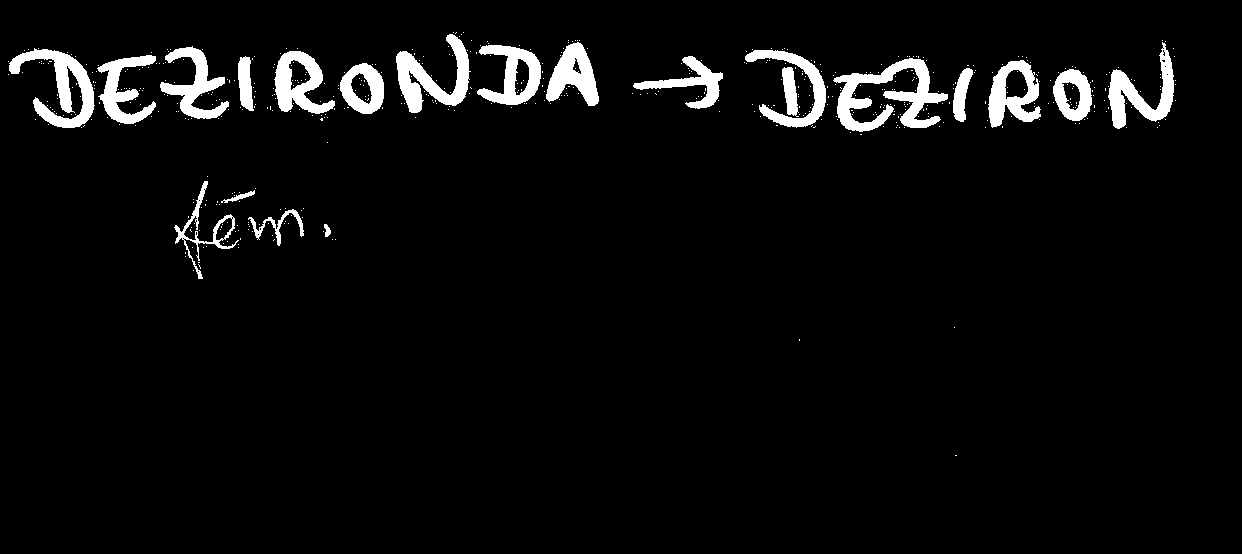 DEZIRONDA → DEZIRON
fém.